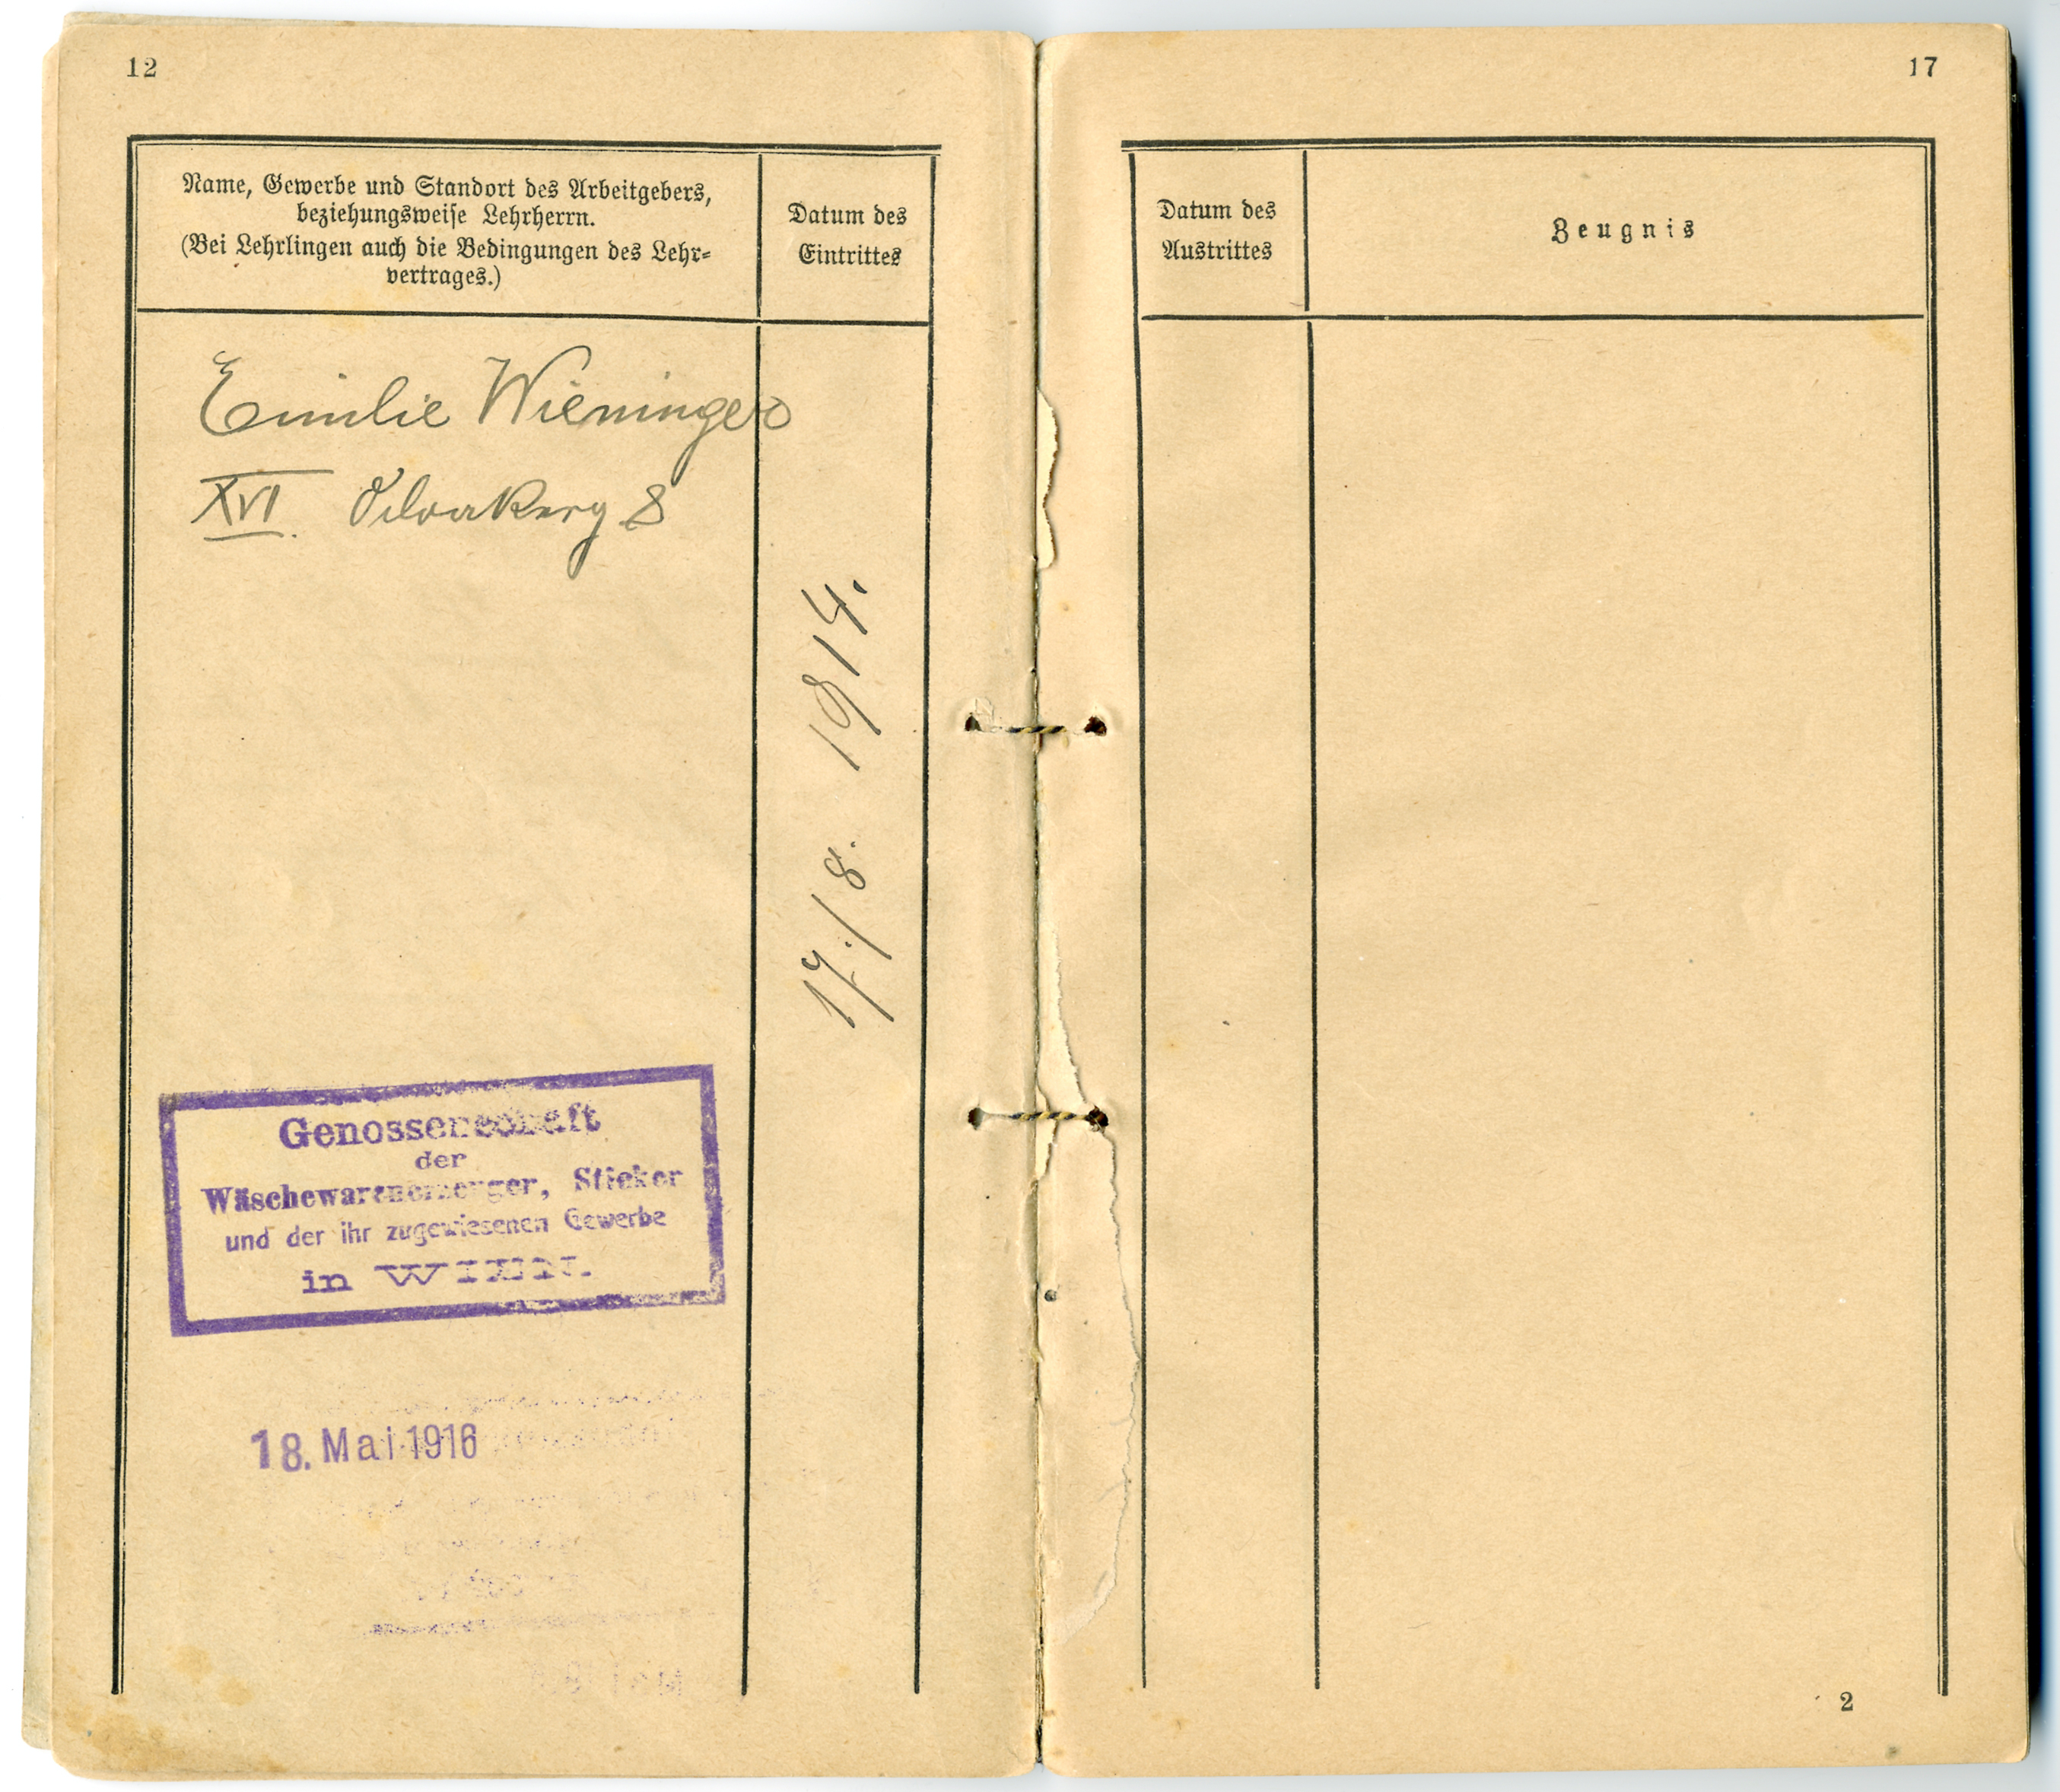 12
Name, Gewerbe und Standort des Arbeitgebers,
beziehungsweise Lehrherrn.
(Bei Lehrlingen auch die Bedingungen des Lehr-
vertrages.)
Datum des
Eintrittes
Emilie Wieninger
XVI. 8
17./8. 1914.
Genossenschaft
der
Wäschewarenerzeuger, Sticker
und der ihr zugewiesenen Gewerbe
in WIEN.
18. Mai 1916
17
Datum des
Austrittes
Zeugnis
2